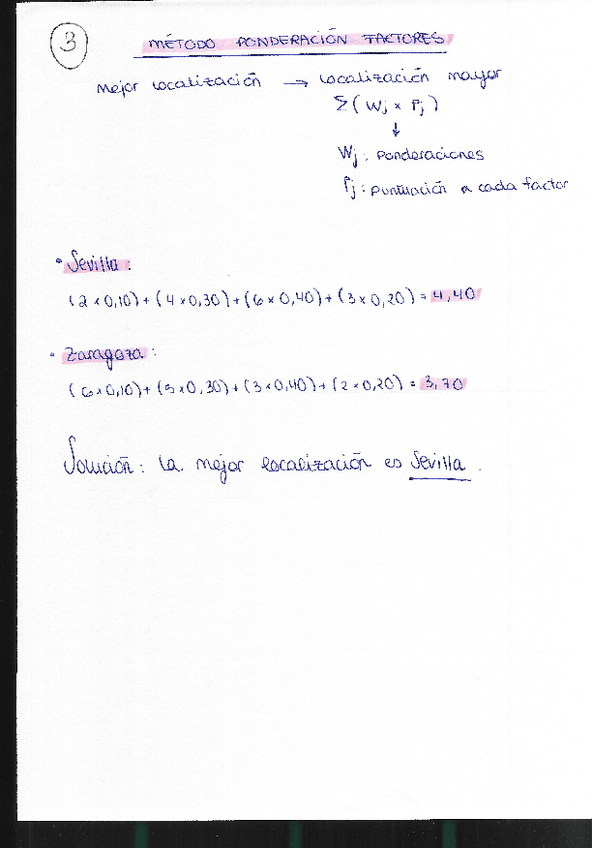 3
MÉTODO PONDERACIÓN FACTORES
Mejor localización → localización mayor
Σ(Wj × Pj)
↓
Wj: ponderaciones
Pj: puntuación a cada factor
• Sevilla:
(2 × 0,10) + (4 × 0,30) + (6 × 0,40) + (3 × 0,20) = 4,40
• Zaragoza:
(6 × 0,10) + (5 × 0,30) + (3 × 0,40) + (2 × 0,20) = 3,70
Solución: la mejor localización es Sevilla.